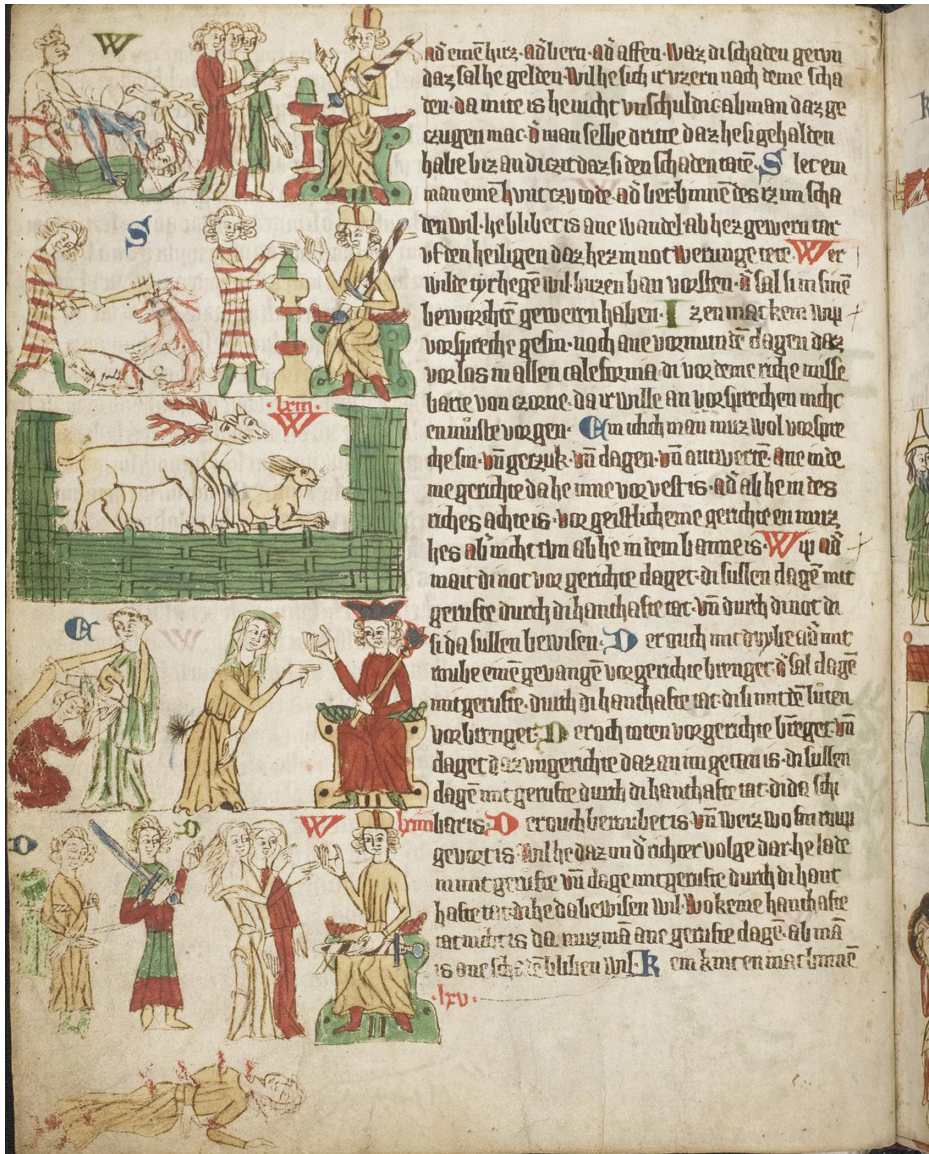 W
S
·lxii·
W
E
D
D
W
lxiii
ad̕ einē hirz · ad̕ bern · ad̕ affen · waz di schaden getun
daz sal he gelden · wil he sich ir vzern nach deme scha
den · da mite is he nicht vnschuldic ab man daz ge
czugen mac · d̕ man selbe dritte daz he si gehalden
habe biz an di czit daz si den schaden tatē · S let ein
man einē hunt czu tode · ad̕ ber binnen des iz im scha
den wil · he blibet is ane wandel ab hez gewern tar
vf den heiligen daz hez in not werunge tete · W er
wilde tyr hege wil buzen ban vorsten · d̕ sal si in sinē
beworchtē geweren haben · I z en mac kein wip
vorspreche gesin · noch ane vormundē clagen daz
vorlos in allen caleforma di vor deme riche misse
barte von czorne · da ir wille an vorsprechen nicht
en muste vorgen · E in iclich man muz wol vorspre
che sin · vn̄ geczuk · vn̄ clagen · vn̄ antwertē · ane in de
me gerichte da he inne vorvest is · ad̕ ab he in des
riches achte is · vor geistlicheme gerichte en muz
hes ab̕ nicht tun ab he in dem banne is · W ip ad̕
mait di not vor gerichte claget · di sullen clagē mit
gerufte durch di hanthafte tat · vn̄ durch di not di
si da sullen bewisen · D er ouch mit dube ad̕ mit
roube einē gevangē vor gerichte brenget · d̕ sal clagē
mit gerufte · durch di hanthafte tat · di si mit dē luten
vorbrenget · D er och toten vor gerichte brēget · vn̄
claget daz vngerichte daz an im getan is · di sullen
clagē mit gerufte durch di hanthafte tat · di da schi
bar is · D er ouch beroubet is · vn̄ weiz wo sin roup
gevort is · wil he daz im d̕ richter volge dor · he lade
in mit gerufte vn̄ clage mit gerufte durch di hant
hafte tat · di he da bewisen wil · wo keine hanthafte
tat nicht is da muz mā ane gerufte clagē · ab mā
is ane schadē bliben wil · K ein kint en mac binnē
·lxv·